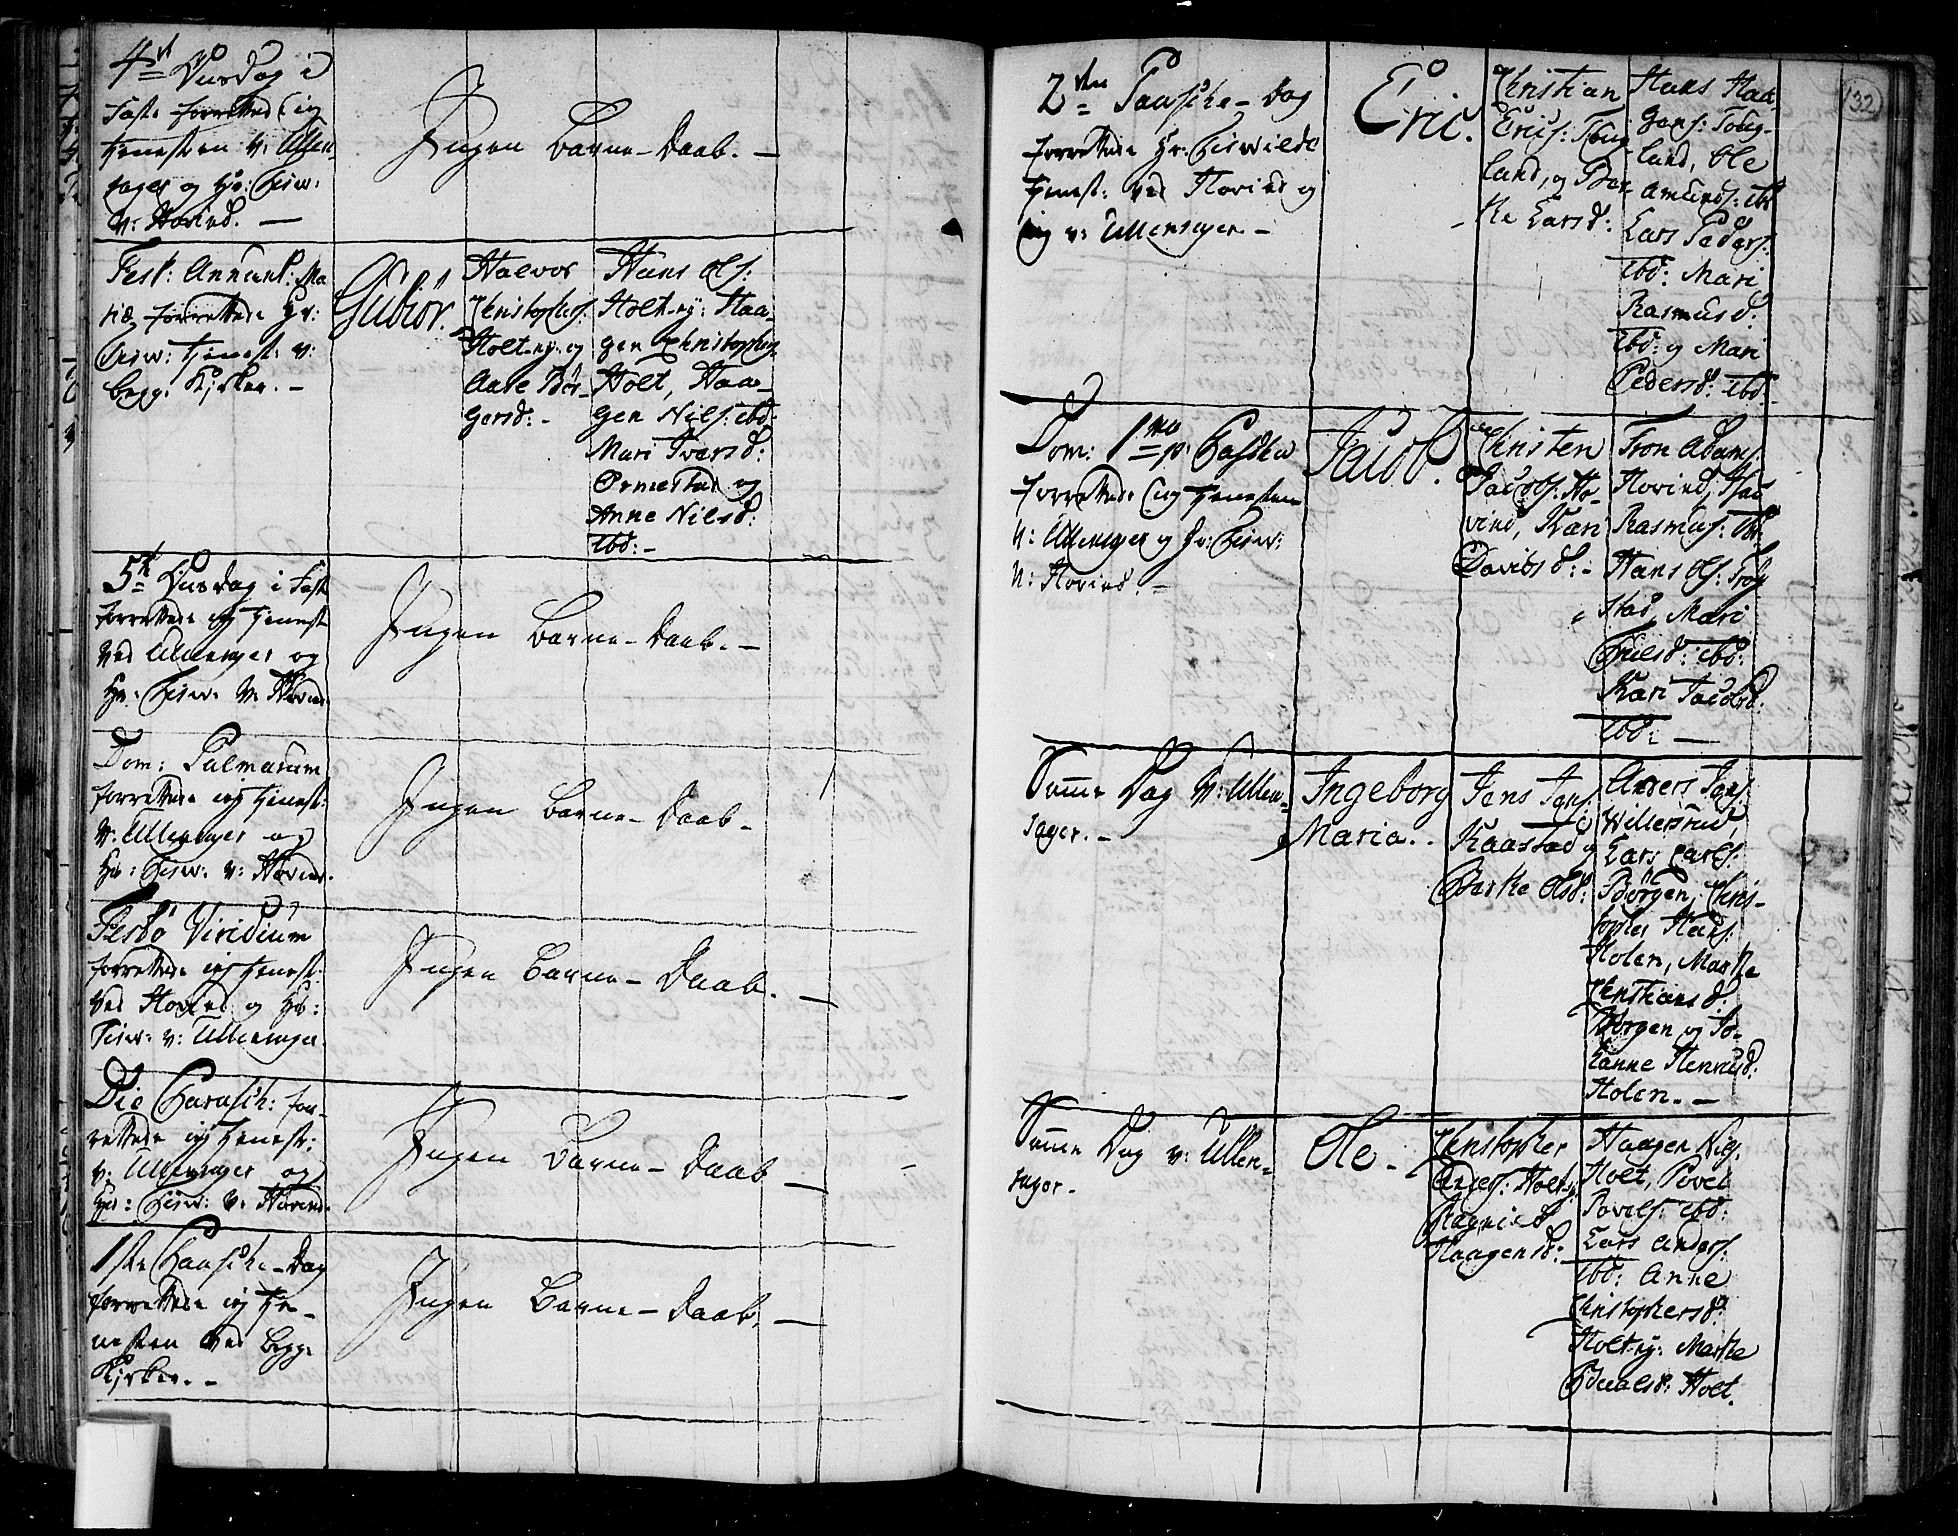 4de Søndag i
Faste forrettede ieg
tienesten v: Ullen-
sager og Hr:
v: Hovind. —
Ingen Barne-Daab. —
Fest: Annunt: Ma-
riæ, forrettede Hr:
Tienest: v:
begge Kirker. —
Gubiör.
Halvor
Christophers:
Holt-ey: og
Aase Bör-
gersd: -
Hans Ols:
Holt-ey: Haa-
gen Christophers:
Holt, Haa-
gen Nils: ibd:
Mari Ivarsd:
Ormestad og
Anne Nilsd:
ibd: -
5te Søndag i Fast
forrettede ieg Tienest
ved Ullensager og
Hr: v: Hovind
Ingen Barne-Daab. —
Dom: Palmarum
forrettede ieg Tienest:
v: Ullensager og
Hr: v: Hovind.
Ingen Barne-Daab -
Festo Viridium
forrettede ieg Tienest:
ved Hovind og Hr:
v: Ullensager.
Ingen Barne-Daab. —
Die Parasch: for-
rettede ieg Tienest:
v: Ullensager og
Hr: v: Hovind.
Ingen Barne-Daab —
1ste Paasche-Dag
forrettede ieg Tie-
nesten ved begge
Kirker. -
Ingen Barne-Daab. —
132
2den Paasche-Dag
forrettede Hr:
Tienest: ved Hovind og
ieg v: Ullensager -
Eric.
Christian
Erics:
land, og Bar-
the Larsd:
Hans Haa-
gens:
land, Ole
Amunds: ibd
Lars Peders:
ibd: Mari
Rasmusd:
ibd: og Mari
Pedersd: ibd:
Dom: 1mo p: Pascha
forrettede ieg Tienesten
v: Ullensager og Hr:
v: Hovind. -
Jacob.
Christen
Jacobs: Ho-
vind, Kari
Davidsd: -
Tron Adams:
Hovind,
Rasmus: ibd:
Hans Ols: Trog-
stad, Mari
ibd:
Kari Jacobsd:
ibd: —
Samme Dag v: Ullen-
sager. -
Ingeborg
Maria.
Jens Jens:
Kaastad og
Berthe Olsd:
Anders Jens:
Willersrud,
Lars Carls:
Borgen, Chris-
topher Hans:
Holen, Marthe
Christiansd:
Borgen og Jo-
hanne Henricsd:
Holen. —
Samme Dag v: Ullen-
sager -
Ole -
Christopher
Anders: Holt-ey:
Ragnild
Haagensd:
Haagen Nils:
Holt, Povel
Povels: ibd:
Lars Anders:
ibd: Anne
Christophersd:
Holt-ey: Marthe
Holt.